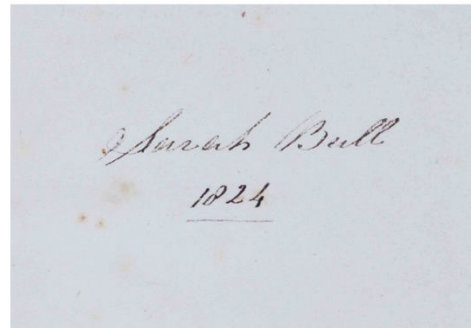 Sarah Bull
1824